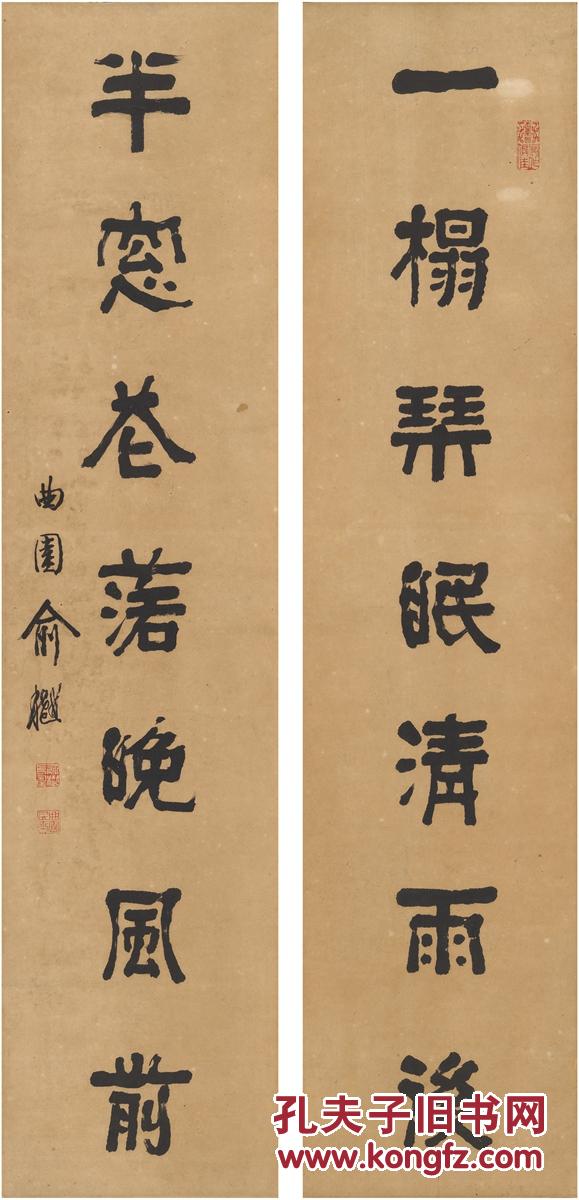 一榻琹眠清雨後
半窓花落晚風前
曲園俞樾
孔夫子旧书网
www.kongfz.com